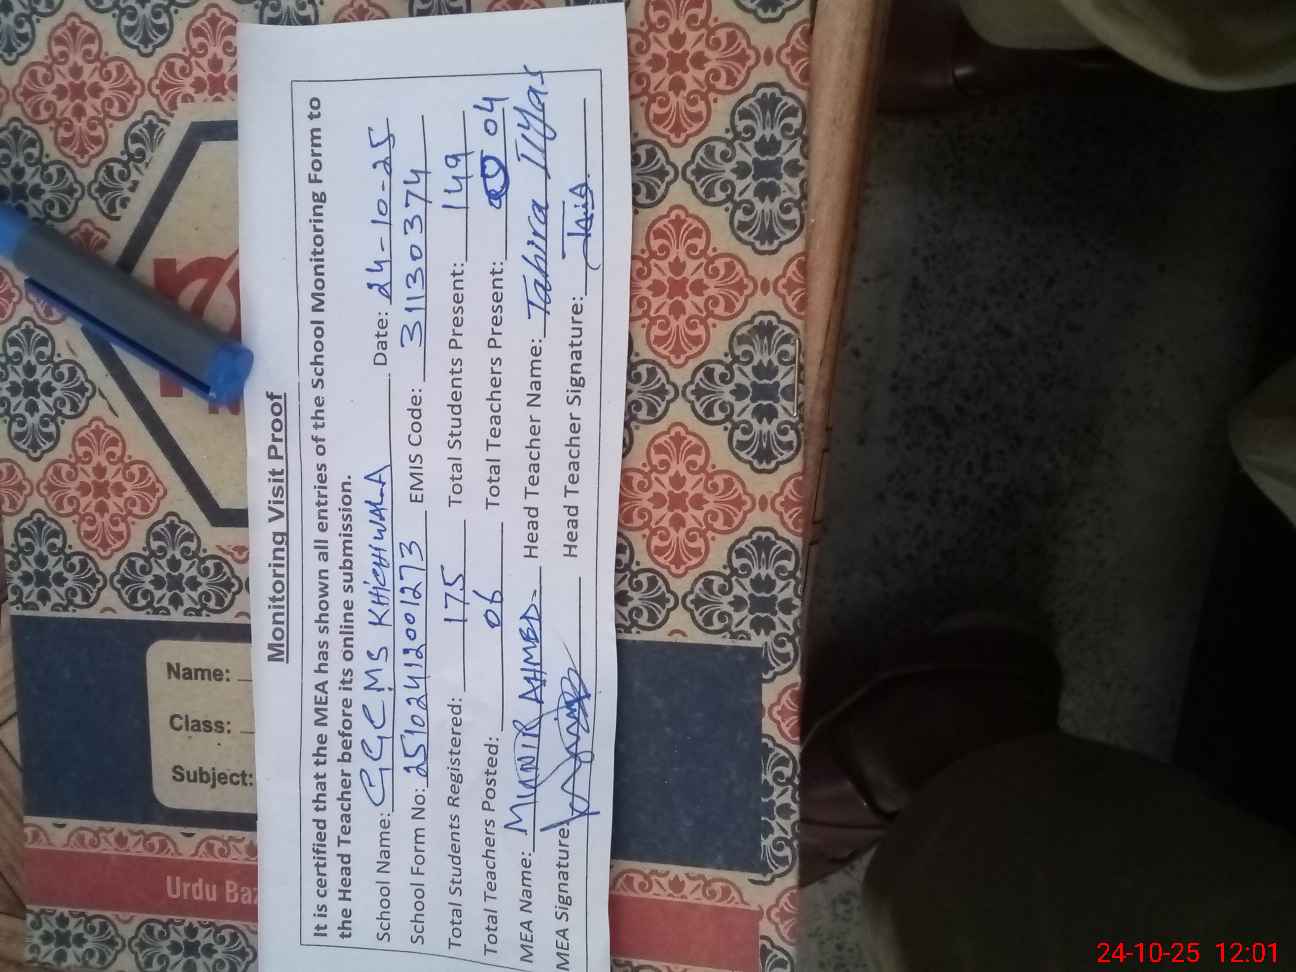 Monitoring Visit Proof
It is certified that the MEA has shown all entries of the School Monitoring Form to
the Head Teacher before its online submission.
School Name: GGCMS KHICHIWALA Date: 24-10-25
School Form No: 25102412001273 EMIS Code: 31130374
Total Students Registered: 175 Total Students Present: 149
Total Teachers Posted: 06 Total Teachers Present: 04
MEA Name: MUNIR AHMED Head Teacher Name: Tahira Ilyas
MEA Signature: Head Teacher Signature:
Name:
Class:
Subject:
Urdu Baz
24-10-25 12:01